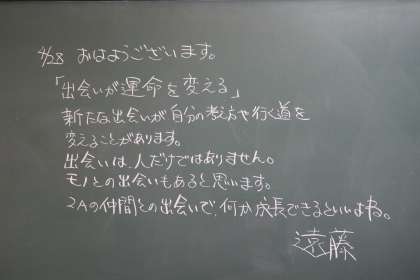 4/28 おはようございます。
「出会いが運命を変える」
新たな出会いが自分の考え方や行く道を
変えることがあります。
出会いは、人だけではありません。
モノとの出会いもあると思います。
2Aの仲間との出会いで、何か成長できるといいよね。
遠藤